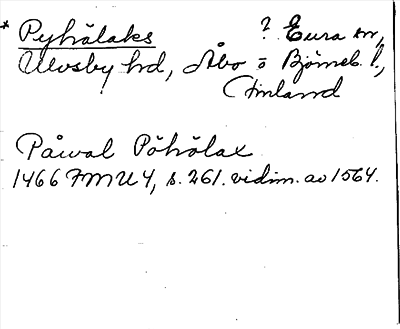 * Pyhälaks ? Eura sn,
Ulvsby hd, Åbo o Björneb. l.,
Finland
Påwal Pöhölax
1466 FMU 4, s. 261. vidim. av 1564.